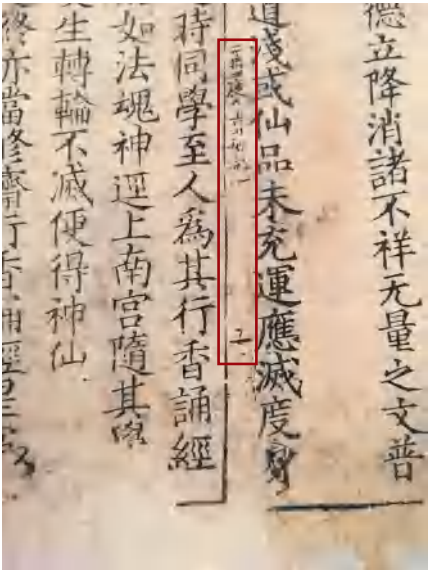 德立降消諸不祥无量之文普
道淺或仙品未充運應滅度身
時同學至人爲其行香誦經
如法魂神逕上南宫隨其學
生轉輪不滅便得神仙
終亦當修齋行香誦經